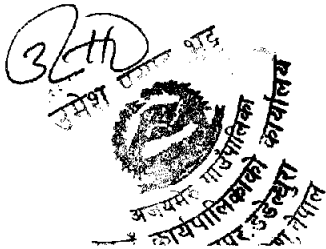 उमेश प्रसाद भट्ट
अजयमेरु गाउँपालिका
कार्यपालिकाको कार्यालय
डडेल्धुरा
नेपाल